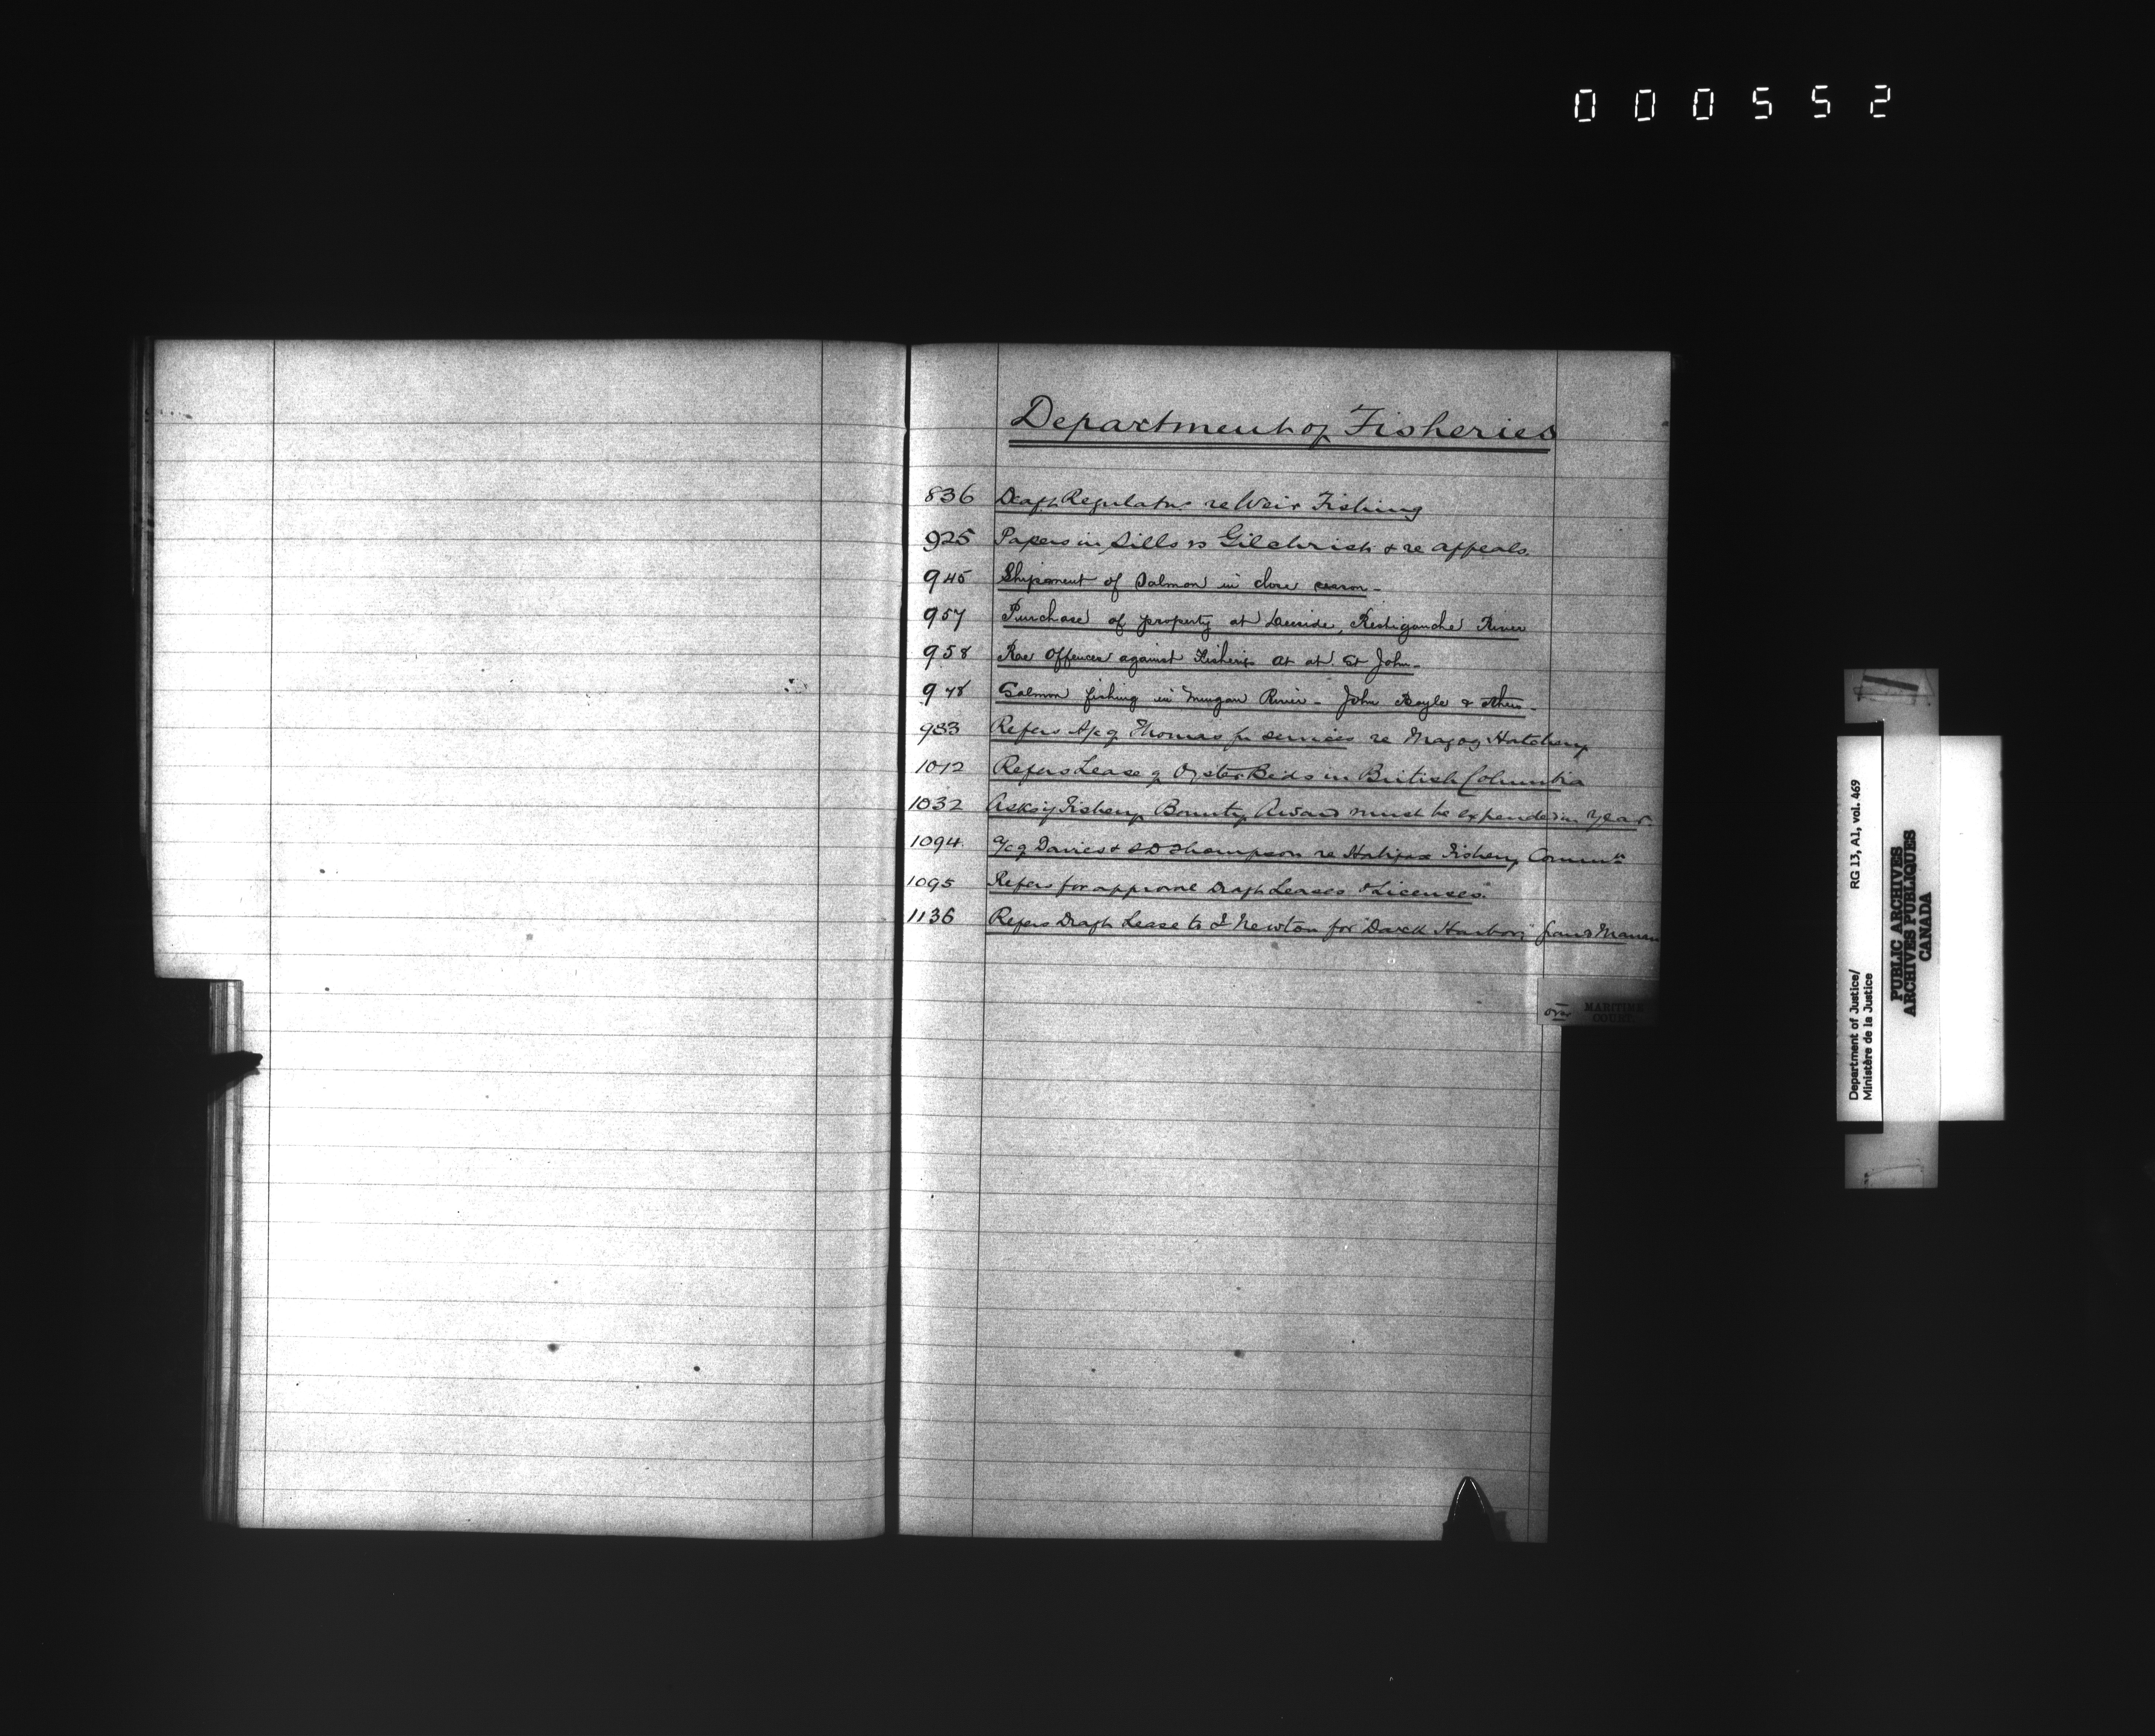 000552
Department of Fisheries
836 Draft Regulatns re Weir Fishing
925 Papers in Sills vs Gilchrist & re appeals.
945 Shipment of Salmon in close season -
957 Purchase of property at Deeside, Restigouche River
958 Rae Offences against Fisheries at at St John -
978 Salmon fishing in Mingan River - John Boyle & others -
983 Refers A/c of Thomas for services re Magog Hatchery
1012 Refers Lease of Oyster Beds in British Columbia
1032 Asks if Fishery Bounty Award must be expended in year.
1094 a/c of Davies & SD Thompson re Halifax Fishery Commn
1095 Refers for approval Draft Leases & Licenses
1136 Refers Draft Lease to I Newton for "Darck Harbor," Grand Manan
over MARITIME COURT
Department of Justice/ RG 13, A1, vol. 469
Ministère de la Justice
PUBLIC ARCHIVES
ARCHIVES PUBLIQUES
CANADA